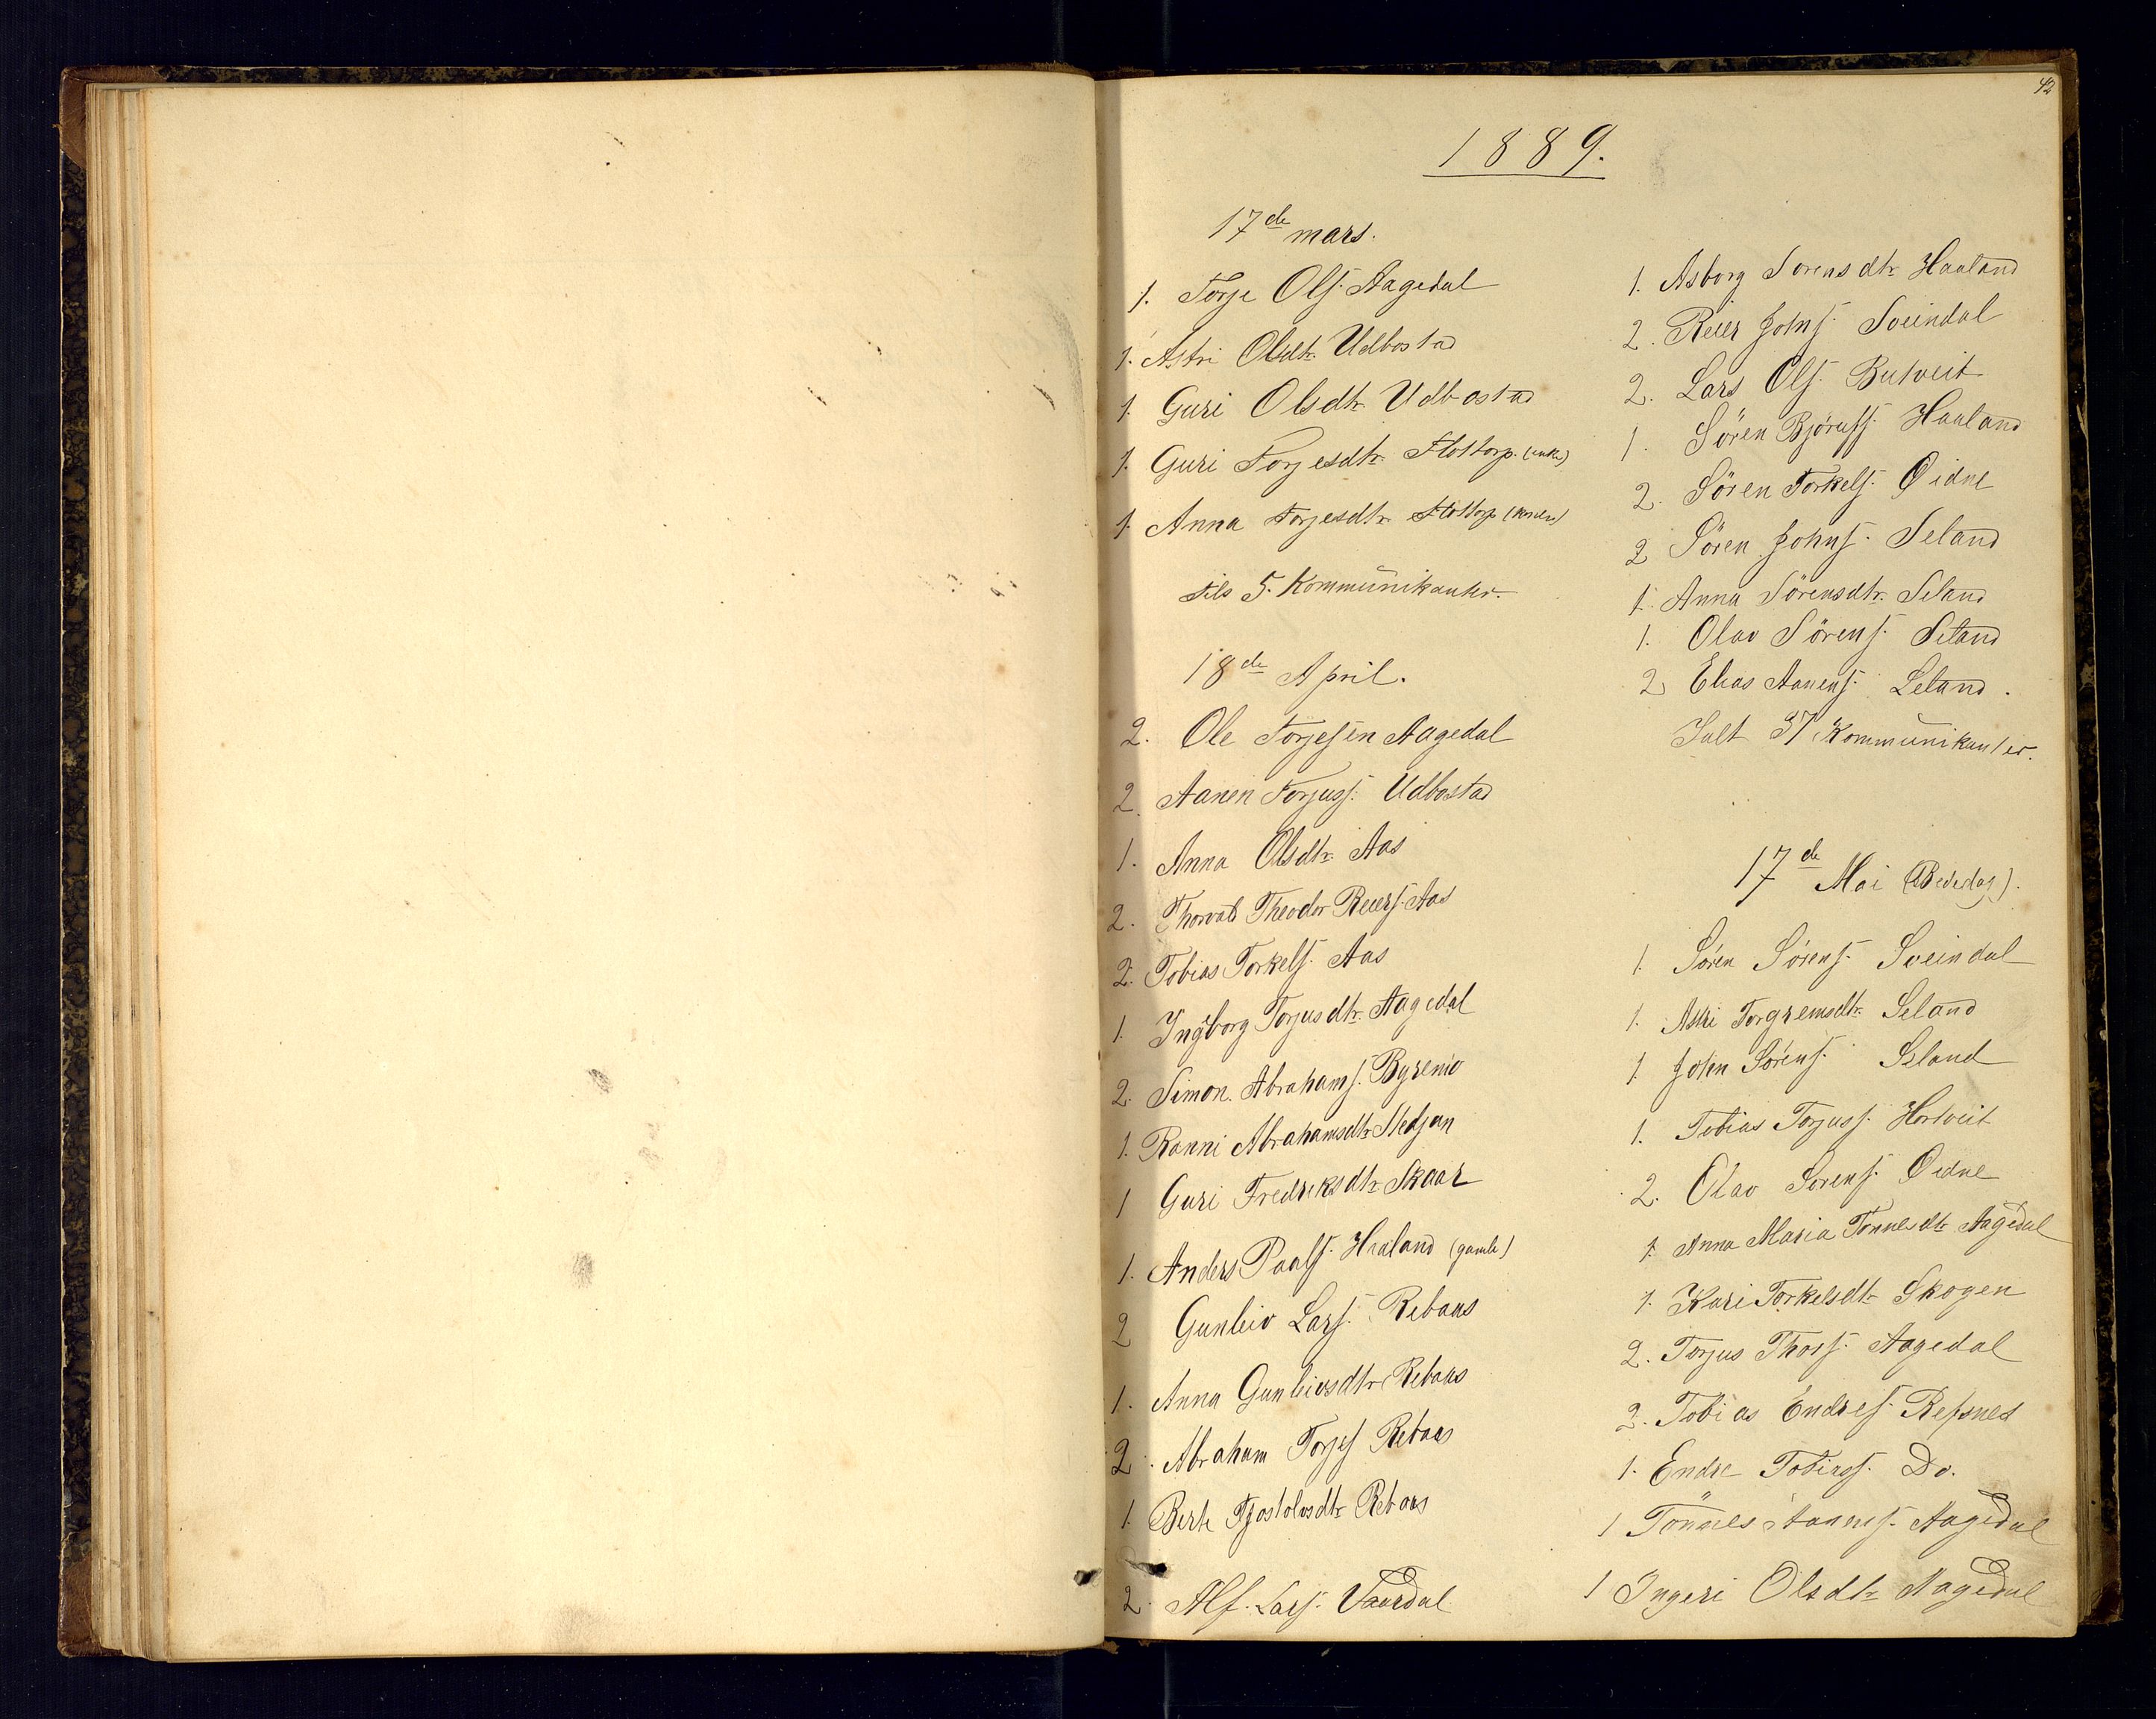 42
1889.
17de mars.
1. Torje Ols. Aagedal
1. Astri Olsdtr. Udbostad
1. Guri Olsdtr. Udbostad
1. Guri Torjesdtr. Flottorp. (enke)
1. Anna Torjesdtr. Flottorp
tils 5. Kommunikanter.
18de April.
2. Ole Torjesen Aagedal
2. Aanen Torjuss. Udbostad
1. Anna Olsdtr. Aas
2. Thorvald Theodor Reiers. Aas
2. Tobias Torkels. Aas
1. Ingborg Torjusdtr. Aagedal
2. Simon Abrahams. Byremo
1. Ranni Abrahamsdtr. Stedjan
1 Guri Fredriksdtr. Skaar
1. Anders Paals. Haaland (gamle)
2 Gunleiv Lars. Rebaas
1. Anna Gunleivsdtr. Rebaas
2. Abraham Torjes. Rebaas
1. Berte Tjostolvsdtr. Rebaas
2. Alf. Lars. Vaardal
1. Asborg Sorensdtr. Haaland
2. Reier Johns. Sveindal
2. Lars Ols. Butveit
1. Sören Björnss. Haaland
2. Sören Torkels. Öidne
2 Sören Johns. Seland
1. Anna Sörensdtr. Seland
1. Olav Sörens. Seland
2 Elias Aanens. Leland.
Ialt 37 Kommunikanter.
17de Mai (Bededag).
1. Sören Sörens. Sveindal
1. Astri Torgremsdtr. Seland
1. John Sörens. Seland
1. Tobias Torjuss. Hortveit
2. Olav Sorens. Öidne
1. Anna Maria Tönnesdtr. Aagedal
1. Kari Torkelsdtr. Skogen
2. Torjus Thors. Aagedal
2. Tobias Endres. Refsnes
1. Endre Tobiass. Do.
1 Tönnes Aanens. Aagedal
1 Ingeri Olsdtr. Aagedal